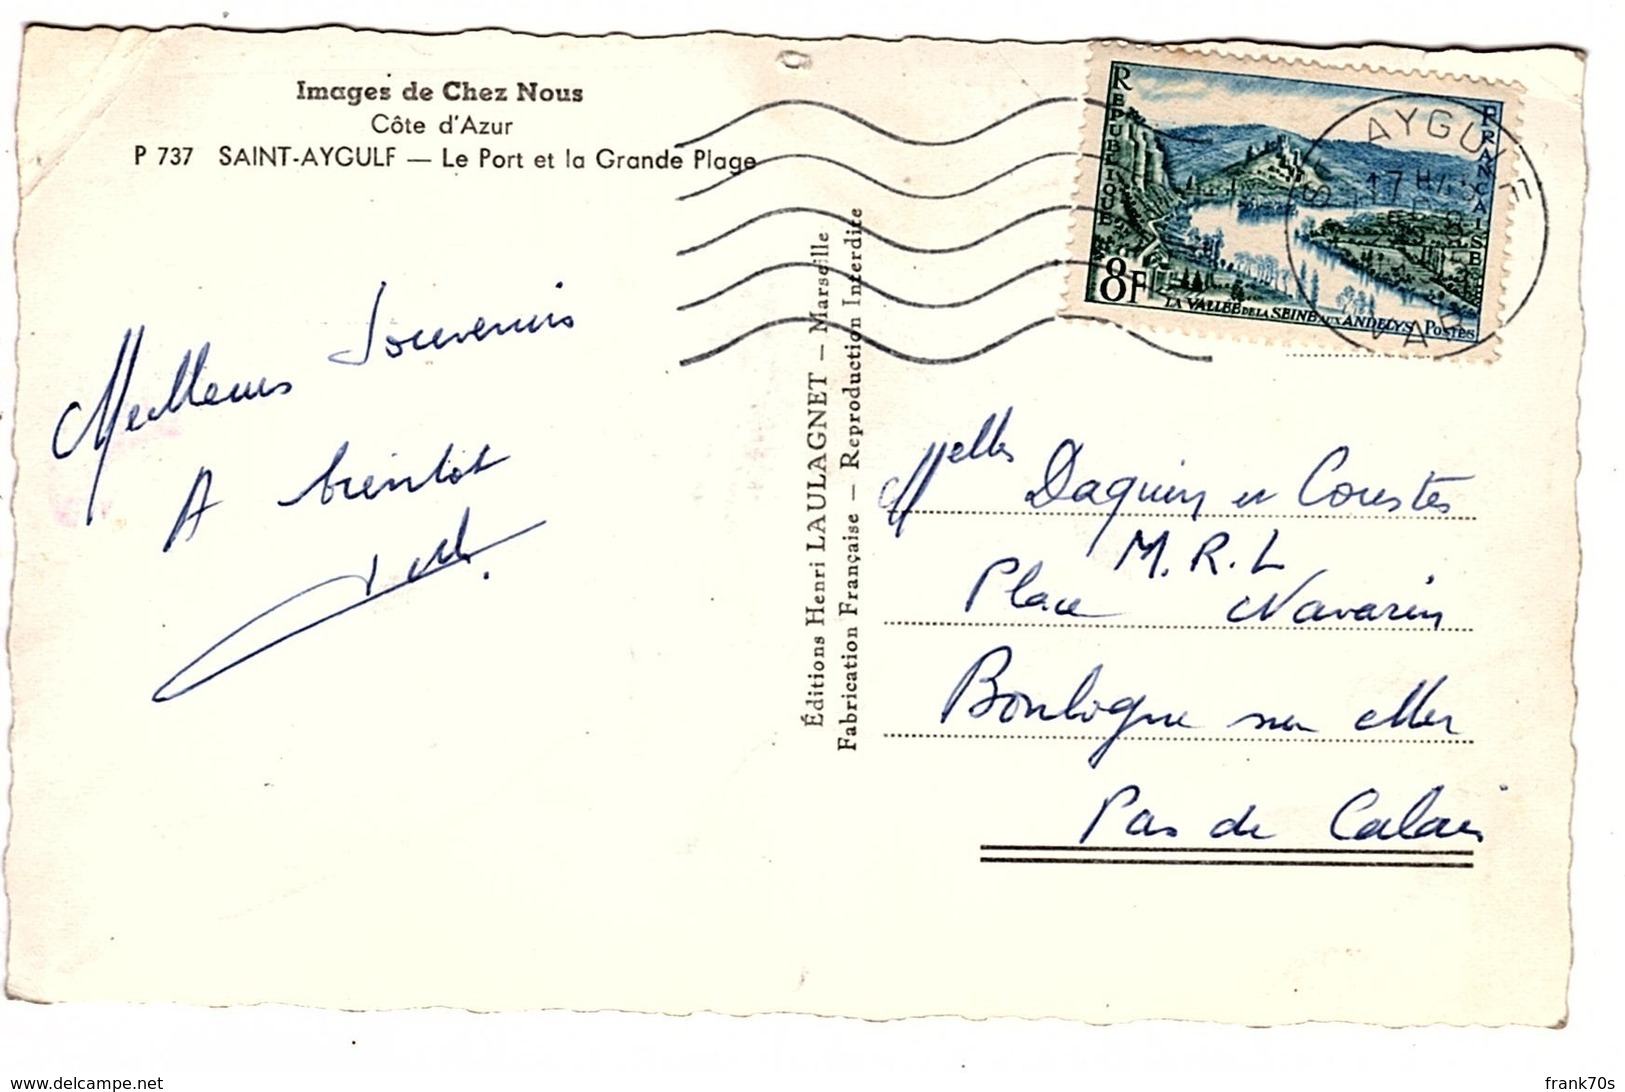 Images de Chez Nous
Côte d'Azur
P 737 SAINT-AYGULF — Le Port et la Grande Plage
Meilleurs Souvenirs
A bientôt
Éditions Henri LAULAGNET — Marseille
Fabrication Française — Reproduction Interdite
RÉPUBLIQUE FRANÇAISE
8F
LA VALLÉE DE LA SEINE AUX ANDELYS POSTES
ST AYGULF
17 H
VAR
Melles Daquin et Coustes
M.R.L
Place Navarin
Boulogne sur Mer
Pas de Calais
delcampe.net
frank70s